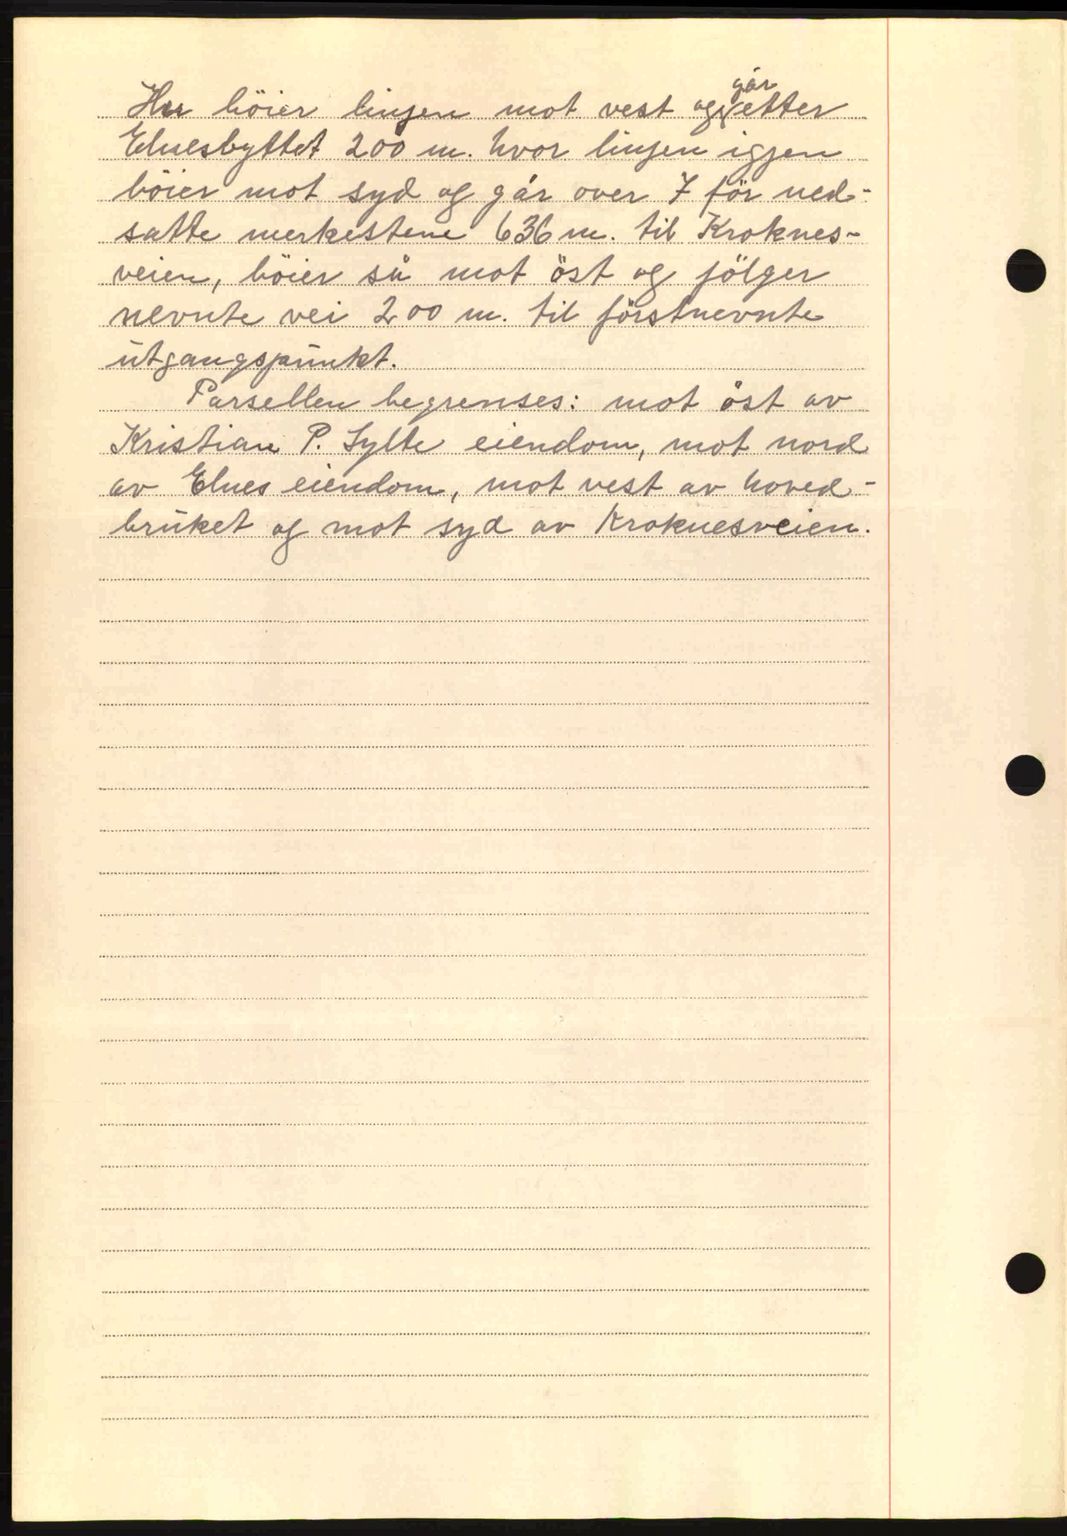 Her böier linjen mot vest og går etter
Elnesbyttet 200 m. hvor linjen igjen
böier mot syd og går over 7 för ned-
satte merkestene 636 m. til Kroknes-
veien, böier så mot öst og fölger
nevnte vei 200 m. til förstnevnte
utgangspunkt.
Parsellen begrenses: mot öst av
Kristian P. Sylte eiendom, mot nord
av Elnes eiendom, mot vest av hoved-
bruket og mot syd av Kroknesveien.